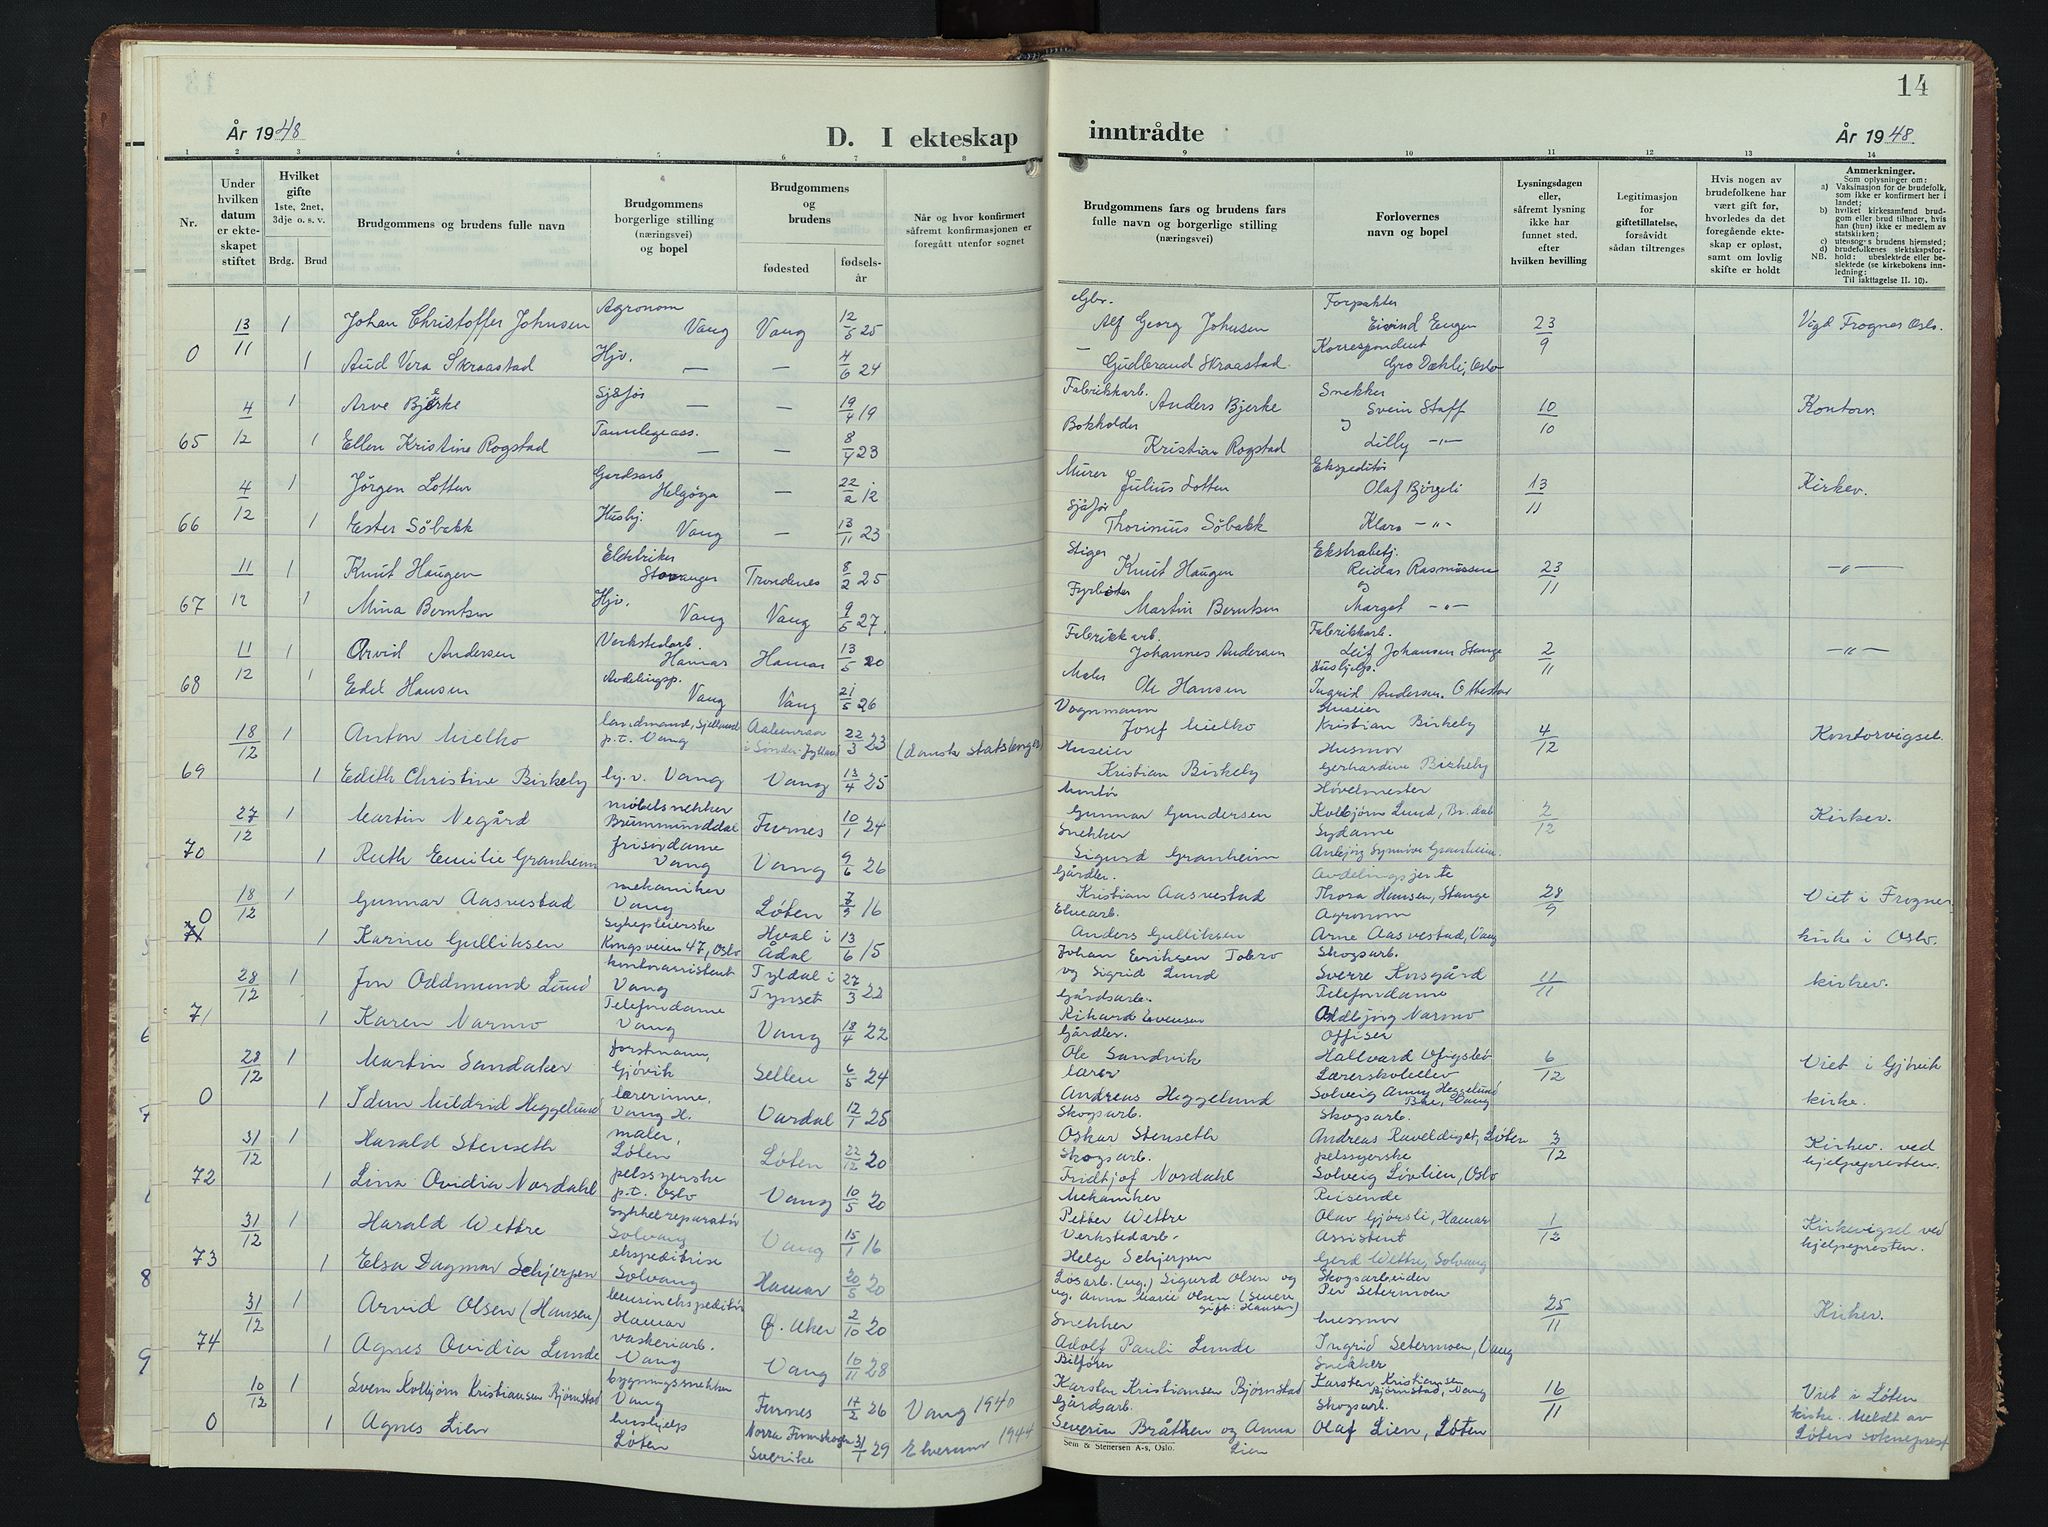 14
År 1948
D. I ekteskap
inntrådte
År 1948
1 2 3 4 5 6 7 8 9 10 11 12 13 14
Nr.
Under hvilken datum er ekteskapet stiftet
Hvilket gifte 1ste, 2net, 3dje o. s. v.
Brdg. Brud
Brudgommens og brudens fulle navn
Brudgommens borgerlige stilling (næringsvei) og bopel
Brudgommens og brudens
fødested
fødselsår
Når og hvor konfirmert såfremt konfirmasjonen er foregått utenfor sognet
Brudgommens fars og brudens fars fulle navn og borgerlige stilling (næringsvei)
Forlovernes navn og bopel
Lysningsdagen eller, såfremt lysning ikke har funnet sted, efter hvilken bevilling
Legitimasjon for giftetillatelse, forsåvidt sådan tiltrenges
Hvis nogen av brudefolkene har vært gift før, hvorledes da det foregående ekteskap er opløst, samt om lovlig skifte er holdt
Anmerkninger.
Som oplysninger om:
a) Vaksinasjon for de brudefolk, som ikke er konfirmert her i landet;
b) hvilket kirkesamfund brudgom eller brud tilhører, hvis han (hun) ikke er medlem av statskirken;
c) utensogns brudens hjemsted;
d) brudefolkenes slektskapsforhold: ubeslektede eller beslektede (se kirkebokens innledning;
NB. Til iakttagelse II. 10).
13/11 1 Johan Christoffer Johnsen Agronom Vang Vang 12/5 25 Gbr. Alf Georg Johnsen Forpakter Eivind Engen 23/9 Vigd Frogner Oslo.
0 1 Aud Vera Skraastad Hjv. — — 4/6 24 — Gudbrand Skraastad Korrespondent Gro Dæhli, Oslo
4/12 1 Arve Bjerke Sjåfør — — 19/4 19 Fabrikkarb. Anders Bjerke Snekker Svein Staff 10/10 Kontorv.
65 1 Ellen Kristine Rogstad Tannlegeass. — — 8/4 23 Bokholder Kristian Rogstad og Lilly —"—
4/12 1 Jørgen Lotten Gardsarb Helgøya — 22/2 12 Murer Julius Lotten Ekspeditør Olaf Bjørgeli 13/11 Kirkev.
66 1 Ester Søbakk Hushj. Vang — 13/11 23 Sjåfør Thorinius Søbakk Klara —"—
11/12 1 Knut Haugen Elektriker Stavanger Trondenes 8/2 25 Stiger Knut Haugen Ekstrabetj. Reidar Rasmussen 23/11 —"—
67 1 Mina Berntsen Hjv. Vang Vang 9/5 27. Fyrbøter Martin Berntsen og Margot —"—
11/12 1 Arvid Andersen Verkstedarb. Hamar Hamar 13/5 20 Fabrikkarb. Johannes Andersen Fabrikkarb. Leif Johansen Stange 2/11 —"—
68 1 Edel Hansen Avdelingsp. Vang Vang 21/5 26 Maler Ole Hansen Hushjelp. Ingrid Andersen. Ottestad
18/12 1 Anton Mielko landmand, Sjelland p.t. Vang Aabenraa i Sønder-Jylland 22/3 23 (dansk statsborger) Vognmann Josef Mielko Huseier Kristian Birkeby 4/12 Kontorvigsel.
69 1 Edith Christine Birkeby hj.v. Vang Vang 13/4 25 Huseier Kristian Birkeby Husmor Gerhardine Birkeby
27/12 1 Martin Negård møbelsnekker Brummunddal Furnes 10/1 24 Montør Gunnar Gundersen Høvelmester Kolbjørn Lund, Br.dal 2/12 Kirkev.
70 1 Ruth Emilie Granheim frisørdame Vang Vang 9/6 26 Snekker Sigurd Granheim Sydame Anbjørg Synnøve Granheim.
18/12 1 Gunnar Aasvestad mekaniker Vang Løten 7/9 16 Gårdbr. Kristian Aasvestad Avdelingsjente Thora Hansen, Stange 28/9 Viet i Frogner
0 71 1 Karine Gulliksen Sykepleierske Kongsveien 47, Oslo Hval i Ådal 13/6 15 Elvearb. Anders Gulliksen Agronom Arne Aasvestad, Vang kirke i Oslo.
5
28/12 1 Jon Oddmund Lund kontorassistent Vang Tyldal i Tynset 27/3 22 Johan Eriksen Tobro og Sigrid Lund Skogsarb. Sverre Korsgård 11/11 kirkev.
71 1 Karen Narmo Telefondame Vang Vang 18/4 22 Gårdsarb. Rikard Evensen Telefondame Oddbjørg Narmo
6
28/12 1 Martin Sandaker forstmann, Gjøvik Sellen 6/5 24 Gårdbr. Ole Sandvik Offiser Hallvard 6/12 Viet i Gjøvik
0 1 Idun Mildrid Heggelund lærerinne, Vang H. Vardal 12/1 25 lærer Andreas Heggelund Lærerskoleelev Solveig Anny Heggelund Vang kirke.
7
31/12 1 Harald Stenseth maler, Løten Løten 22/12 20 Skogsarb. Oskar Stenseth Skogsarb. Andreas Raveldiget, Løten 3/12 Kirkev. ved hjelpepresten.
72 1 Lina Ovidia Nordahl pelssyerske p.t. Oslo Vang 10/5 20 Skogsarb. Fridtjof Nordahl pelssyerske Solveig Lövlien, Oslo
31/12 1 Harald Wettre Sykkelreparatør Solvang Vang 15/1 16 Mekaniker Petter Wettre Reisende Olav Gjørsli, Hamar 1/12 Kirkevigsel ved hjelpepresten.
73 1 Elsa Dagmar Schjerpen ekspeditrise Solvang Hamar 20/5 20 Verkstedarb. Helge Schjerpen Assistent Gerd Wettre, Solvang
8
31/12 1 Arvid Olsen (Hansen) bensinekspeditør Hamar Ø. Aker 2/10 20 Løsarb. (ug.) Sigurd Olsen og ug. Anna Marie Olsen (senere gift: Hansen) Skogsarbeider Per Setermoen 25/11 Kirkev.
74 1 Agnes Ovidia Lunde vaskeriarb. Vang Vang 10/11 28 Snekker Adolf Pauli Lunde husmor Ingrid Setermoen, Vang
9
10/12 1 Svein Kolbjørn Kristiansen Bjørnstad bygningssnekker Vang Furnes 17/2 26 Vang 1940 Bilfører Karsten Kristiansen Bjørnstad Snekker Karsten Kristiansen Bjørnstad, Vang 16/11 Viet i Løten
0 1 Agnes Lien hushjelp Løten Norra Finnskogen Sverike 31/1 29 Elverum 1944 Gårdsarb. Severin Bråthen og Anna Lien Skogsarb. Olaf Lien, Løten kirke. Meldt av Løten sokneprest
Sem & Stenersen A-s, Oslo.